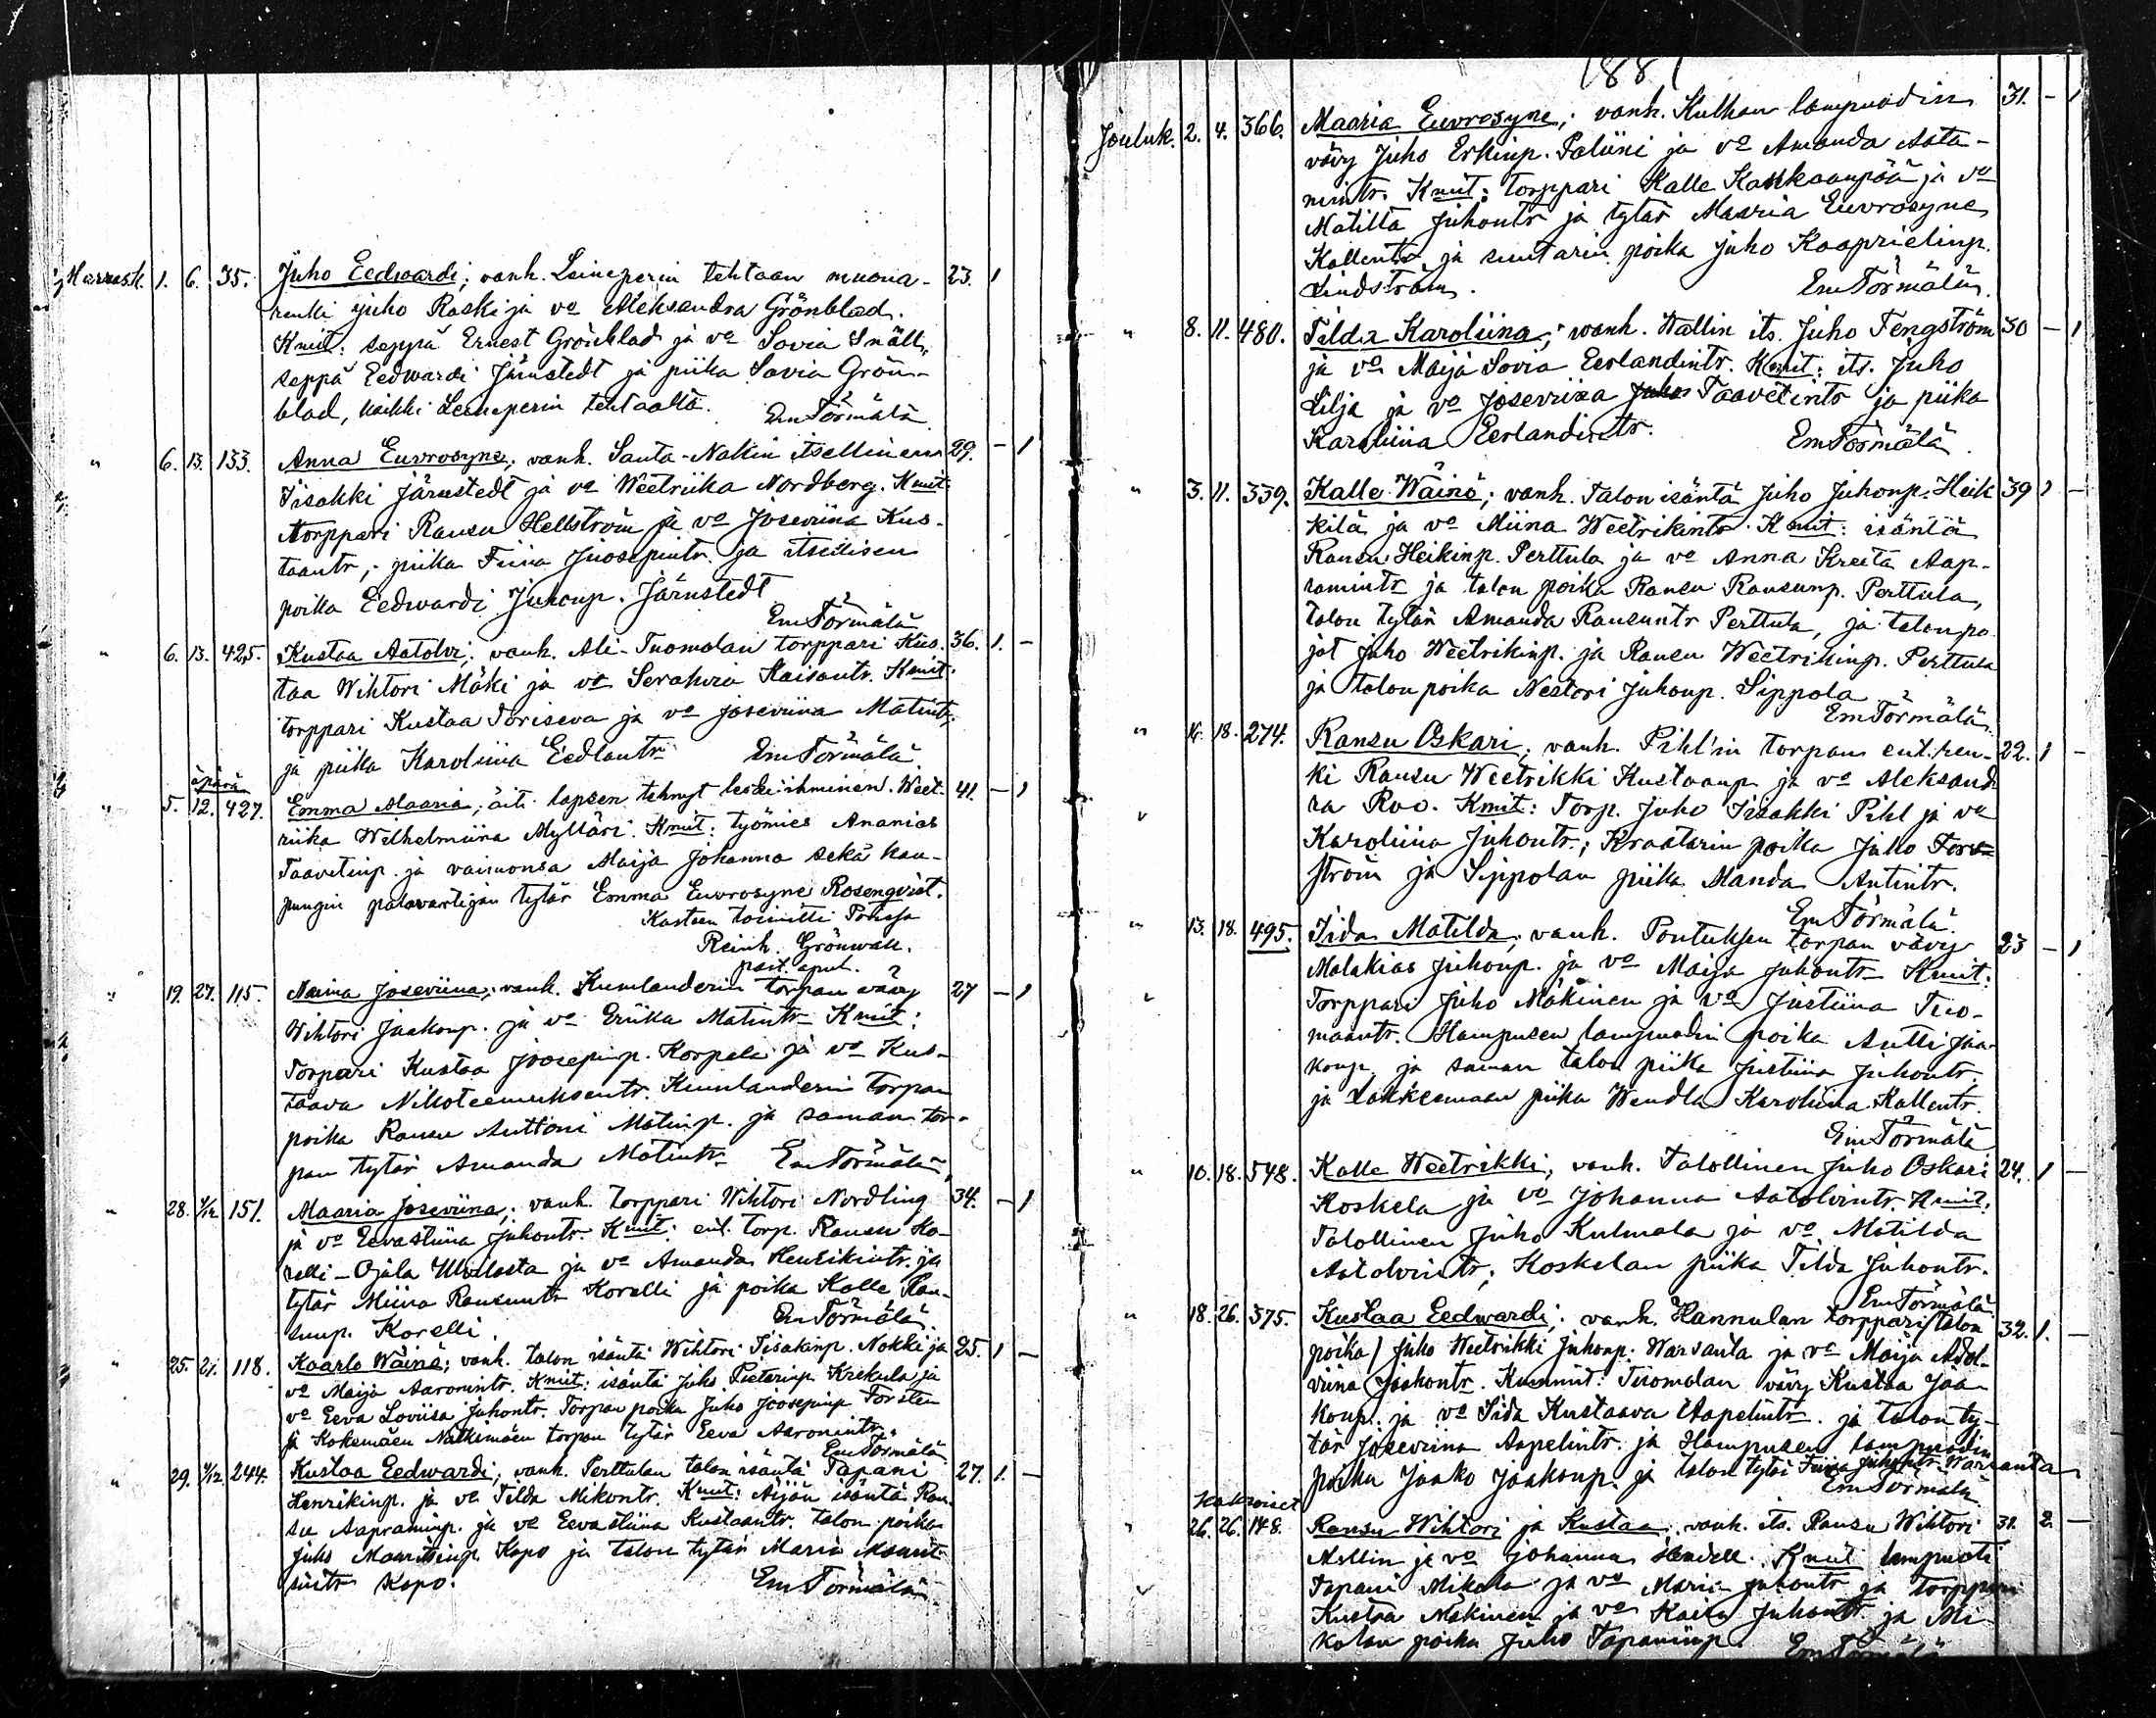 Marrask. 1. 6. 35. Juho Eedwardi; vanh. Leineperin tehtaan muona- 23. 1
renki Juho Raski ja vo Aleksandra Grönblad.
Kmit: seppä Ernest Grönblad ja vo Sovia Snäll,
seppä Eedwardi Järnstedt ja piika Sovia Grön-
blad, kaikki Leineperin tehtaalta. Em Törmälä
" 6. 13. 133. Anna Euvrosyne; vanh. Santa-Nakin itsellinen 29. - 1
Iisakki Järnstedt ja vo Weetriika Nordberg. Kmit:
torppari Ransu Hellström ja vo Joseviina Kus-
taantr, piika Fiina Juosepintr. ja itsellisen
poika Eedwardi Juhonp. Järnstedt
Em Törmälä
" 6. 13. 425. Kustaa Aatolvi; vanh. Ali-Tuomolan torppari Kus- 36. 1. -
taa Wihtori Mäki ja vo Serahvia Kaisantr. Kmit:
torppari Kustaa Toriseva ja vo Joseviina Matintr,
ja piika Karoliina Eedlantr Em Törmälä
äpärä
" 5. 12. 427. Emma Maaria; äiti lapsen tehnyt leski-ihminen Weet- 41. - 1
riika Wilhelmiina Mylläri. Kmit: työmies Ananias
Taavetinp. ja vaimonsa Maija Johanna sekä kau-
pungin palovartijan tytär Emma Euvrosyne Rosenqvist.
Kasteen toimitti Porissa
Reinh. Grönwall.
past. apul.
" 19. 27. 115. Naima Joseviina; vanh. Kumlanderin torpan vävy 27 - 1
Wihtori Jaakonp. ja vo Eriika Matintr Kmit:
Torpari Kustaa Joosepinp. Korpela ja vo Kus-
taava Nikoteemuksentr. Kumlanderin torpan
poika Ransu Anttoni Matinp. ja saman tor-
pan tytär Amanda Matintr Em Törmälä
" 28. 4/12 151. Maaria Joseviina; vanh. torppari Wihtori Nordling 34. - 1
ja vo Eevastiina Juhontr. Kmit: ent. torp. Ransu Ko-
relli-Ojala Ulvilasta ja vo Amanda Henrikintr. ja
tytär Miina Ransuntr Korelli ja poika Kalle Ran-
sunp. Korelli. Em Törmälä.
" 25. 27. 118. Kaarlo Wäinö; vanh. talon isäntä Wihtori Iisakinp. Nokki ja 25. 1 -
vo Maija Aaronintr. Kmit: isäntä Juho Pieterinp Krekula ja
vo Eeva Loviisa Juhontr. Torpan poika Juho Joosepinp Forsten
ja Kokemäen Nälkämäen torpan tytär Eeva Aaronintr.
Em Törmälä
" 29. 4/12 244. Kustaa Eedwardi; vanh. Perttulan talon isäntä Tapani 27. 1. -
Henrikinp. ja vo Tilda Mikontr. Kmit: Äijön isäntä Ran-
su Aapraminp. ja vo Eevastiina Kustaantr. talon poika
Juho Mauritsinp. Kopo ja talon tytär Maria Maurit-
sintr Kopo. Em Törmälä
1881
Jouluk. 2. 4. 366. Maaria Euvrosyne; vanh. Kulhan lampuodin 31. - 1
vävy Juho Erkinp. Paliini ja vo Amanda Aata-
mintr. Kmit: torppari Kalle Kaskaanpää ja vo
Matilta Juhontr ja tytär Maaria Euvrosyne
Kallentr ja suutarin poika Juho Kaaprielinp.
Lindström. Em Törmälä.
" 8. 11. 480. Tilda Karoliina; vanh. Wallin its. Juho Tengström 30 - 1
ja vo Maija Sovia Eerlandintr. Kmit: its. Juho
Lilja ja vo Joseviina Juho Taavetintr ja piika
Karoliina Eerlandintr. Em Törmälä
" 3. 11. 339. Kalle Wäinö; vanh. Talon isäntä Juho Juhonp. Heik 39 1 -
kilä ja vo Miina Weetrikintr. Kmit: isäntä
Ransu Heikinp. Perttula ja vo Anna Kreeta Aap-
ramintr ja talon poika Ransu Ransunp. Perttula,
talon tytär Amanda Ransuntr Perttula, ja talon po
jat Juho Weetrikinp. ja Ransu Weetrikinp. Perttula
ja talon poika Nestori Juhonp. Sippola
Em Törmälä
" 16. 18. 274. Ransu Oskari; vanh. Pihl'in torpan ent. ren- 22. 1 -
ki Ransu Weetrikki Kustaanp. ja vo Aleksand
ra Roo. Kmit: Torp. Juho Iisakki Pihl ja vo
Karoliina Juhontr; Kraatarin poika Juho Fors-
ström ja Sippolan piika Manda Antintr.
Em Törmälä
" 13. 18. 495. Iida Matilda; vanh. Pontuksen torpan vävy 23 - 1
Malakias Juhonp. ja vo Maija Juhontr Kmit:
Torppari Juho Mäkinen ja vo Justiina Tuo-
maantr. Hampusen lampuodin poika Antti Jaa-
konp. ja saman talon piika Justiina Juhontr.
ja piika Wendla Karoliina Kallentr.
Em Törmälä
" 10. 18. 548. Kalle Weetrikki; vanh. Talollinen Juho Oskari 24. 1 -
Koskela ja vo Johanna Aatolvintr. Kmit:
Talollinen Juho Kulmala ja vo Matilda
Aatolvintr; Koskelan piika Tilda Juhontr.
Em Törmälä
" 18. 26. 375. Kustaa Eedwardi; vanh. Hannulan torppari (talon 32. 1. -
poika) Juho Weetrikki Juhonp. Warsanta ja vo Maija Adol-
viina Jaakontr. Kummit: Tuomolan vävy Kustaa Jaa-
konp. ja vo Iida Kustaava Aapelintr. ja talon ty-
tär Joseviina Aapelintr. ja Hampusen lampuodin
poika Jaako Jaakonp. ja talon tytär Fiina Juhontr. Warsanta
Em Törmälä
Kaksoiset
" 26. 26. 148. Ransu Wihtori ja Kustaa; vanh. its. Ransu Wihtori 31. 2 -
Mellin ja vo Johanna Kmit: lampuoti
Tapani Mikola ja vo Maria Juhontr ja torppari
Kustaa Mäkinen ja vo Kaisa Juhontr. ja Mi-
kolan poika Juho Tapaninp. Em Törmälä